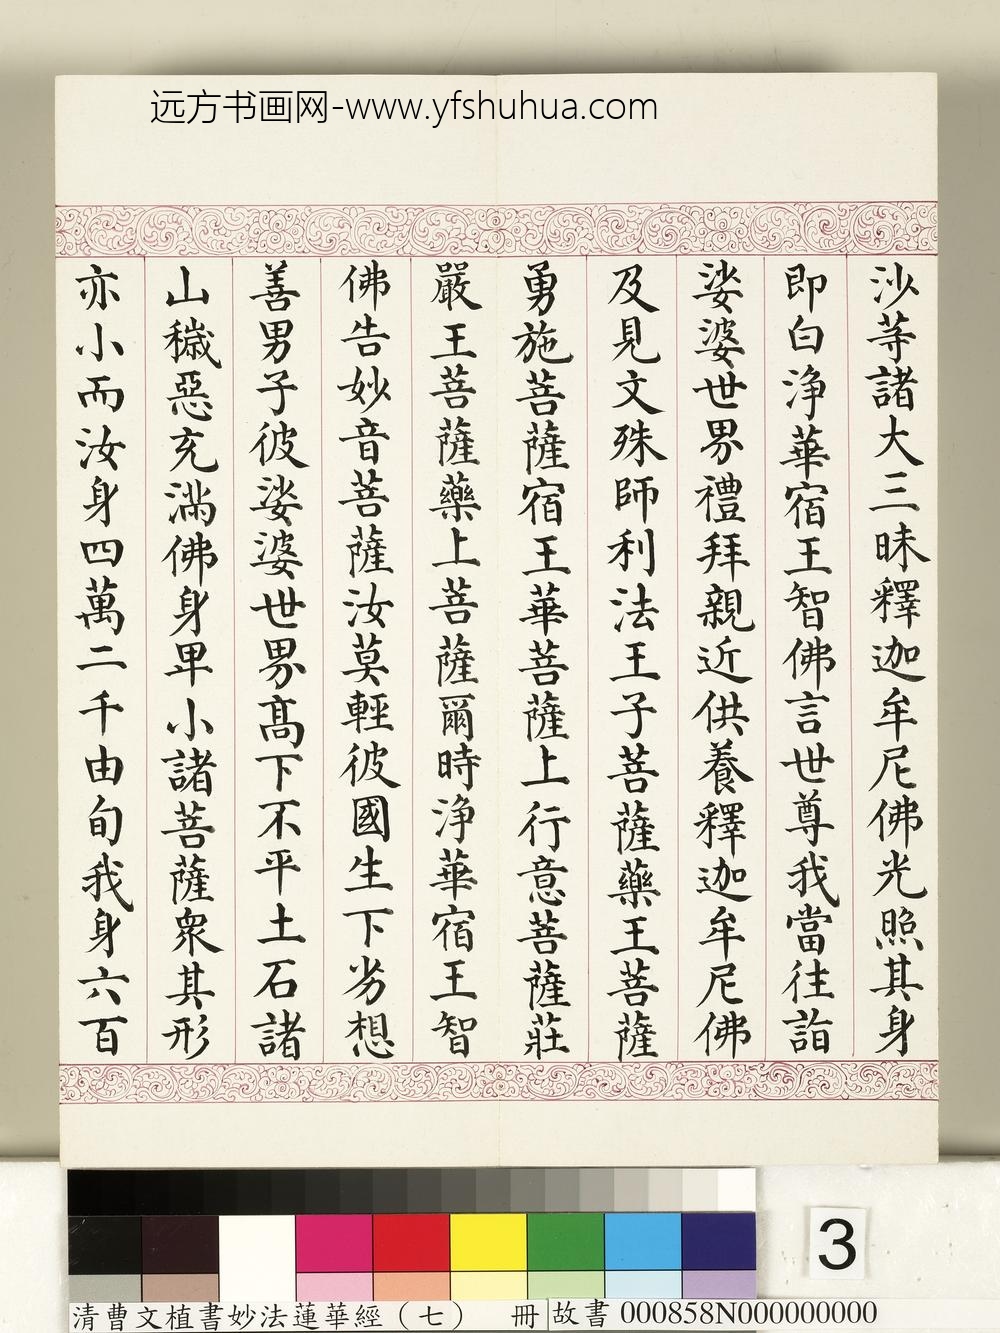 远方书画网-www.yfshuhua.com
沙等諸大三昧釋迦牟尼佛光照其身
即白淨華宿王智佛言世尊我當往詣
娑婆世界禮拜親近供養釋迦牟尼佛
及見文殊師利法王子菩薩藥王菩薩
勇施菩薩宿王華菩薩上行意菩薩莊
嚴王菩薩藥上菩薩爾時淨華宿王智
佛告妙音菩薩汝莫輕彼國生下劣想
善男子彼娑婆世界髙下不平土石諸
山穢惡充滿佛身卑小諸菩薩衆其形
亦小而汝身四萬二千由旬我身六百
3
清曹文植書妙法蓮華經（七） 冊 故書 000858N000000000